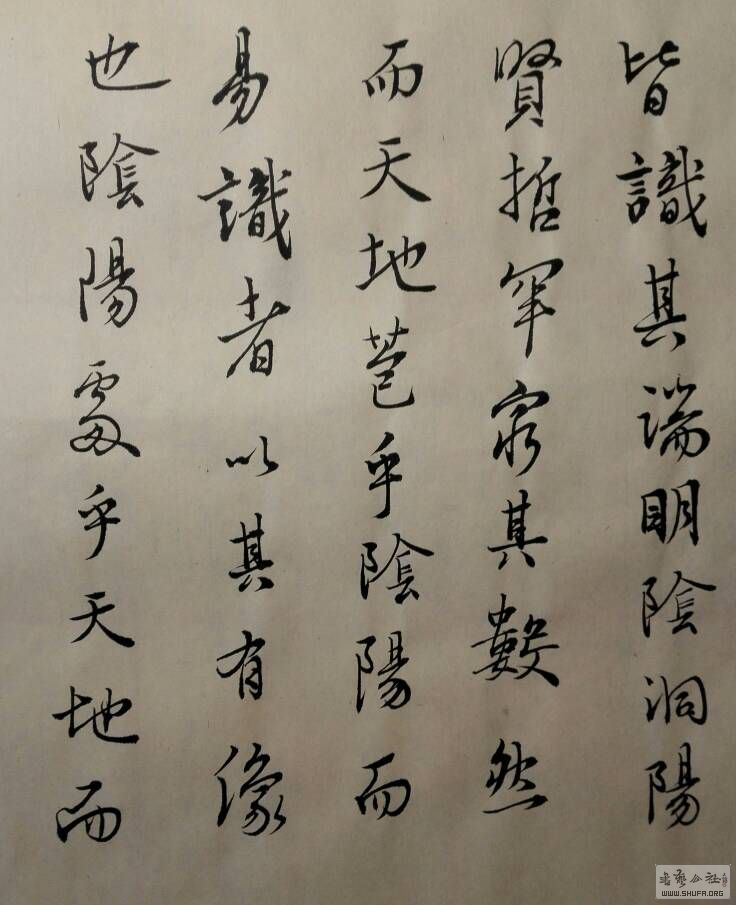 皆識其端明陰洞陽
賢哲罕窮其數然
而天地苞乎陰陽而
易識者以其有像
也陰陽處乎天地而
書藝公社
WWW.SHUFA.ORG